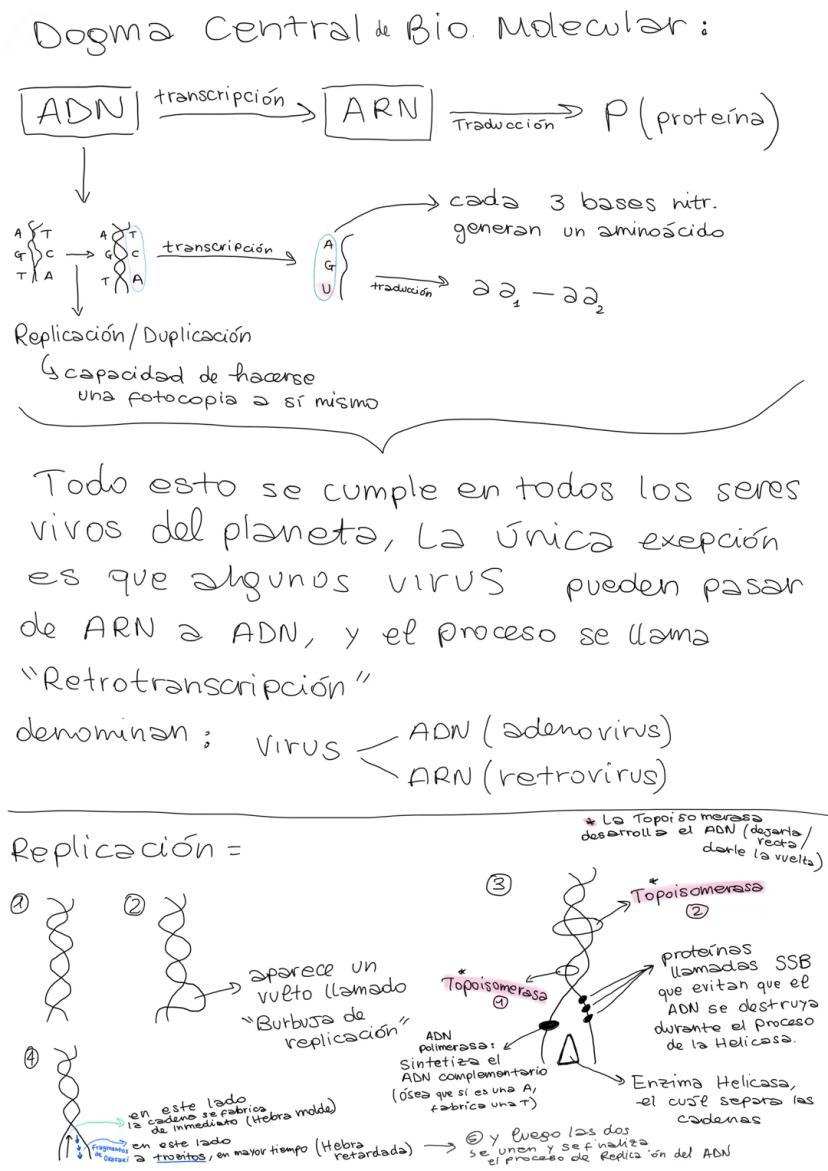 Dogma Central de Bio. Molecular:
ADN transcripción ARN Traducción P (proteína)
cada 3 bases nitr.
generan un aminoácido
A T
G C
T A
A T
G C
T A
transcripción
A
G
U
traducción
aa1 - aa2
Replicación/Duplicación
capacidad de hacerse
una fotocopia a sí mismo
Todo esto se cumple en todos los seres
vivos del planeta, La única exepción
es que algunos virus pueden pasar
de ARN a ADN, y el proceso se llama
"Retrotranscripción"
denominan: virus
ADN (adenovirus)
ARN (retrovirus)
Replicación =
* La Topoisomerasa
desarrolla el ADN (dejarla/
recta/
darle la vuelta)
1
2
aparece un
vulto llamado
"Burbuja de
replicación"
3
* Topoisomerasa
2
* Topoisomerasa
1
proteínas
llamadas SSB
que evitan que el
ADN se destruya
durante el proceso
de la Helicasa.
ADN
polimerasa:
Sintetiza el
ADN complementario
(ósea que si es una A,
fabrica una T)
Enzima Helicasa,
el cual separa las
cadenas
4
en este lado
la cadena se fabrica
de inmediato (Hebra molde)
Fragmentos
de Okazaki
en este lado
a trocitos, en mayor tiempo (Hebra
retardada)
5 y luego las dos
se unen y se finaliza
el proceso de Replicación del ADN